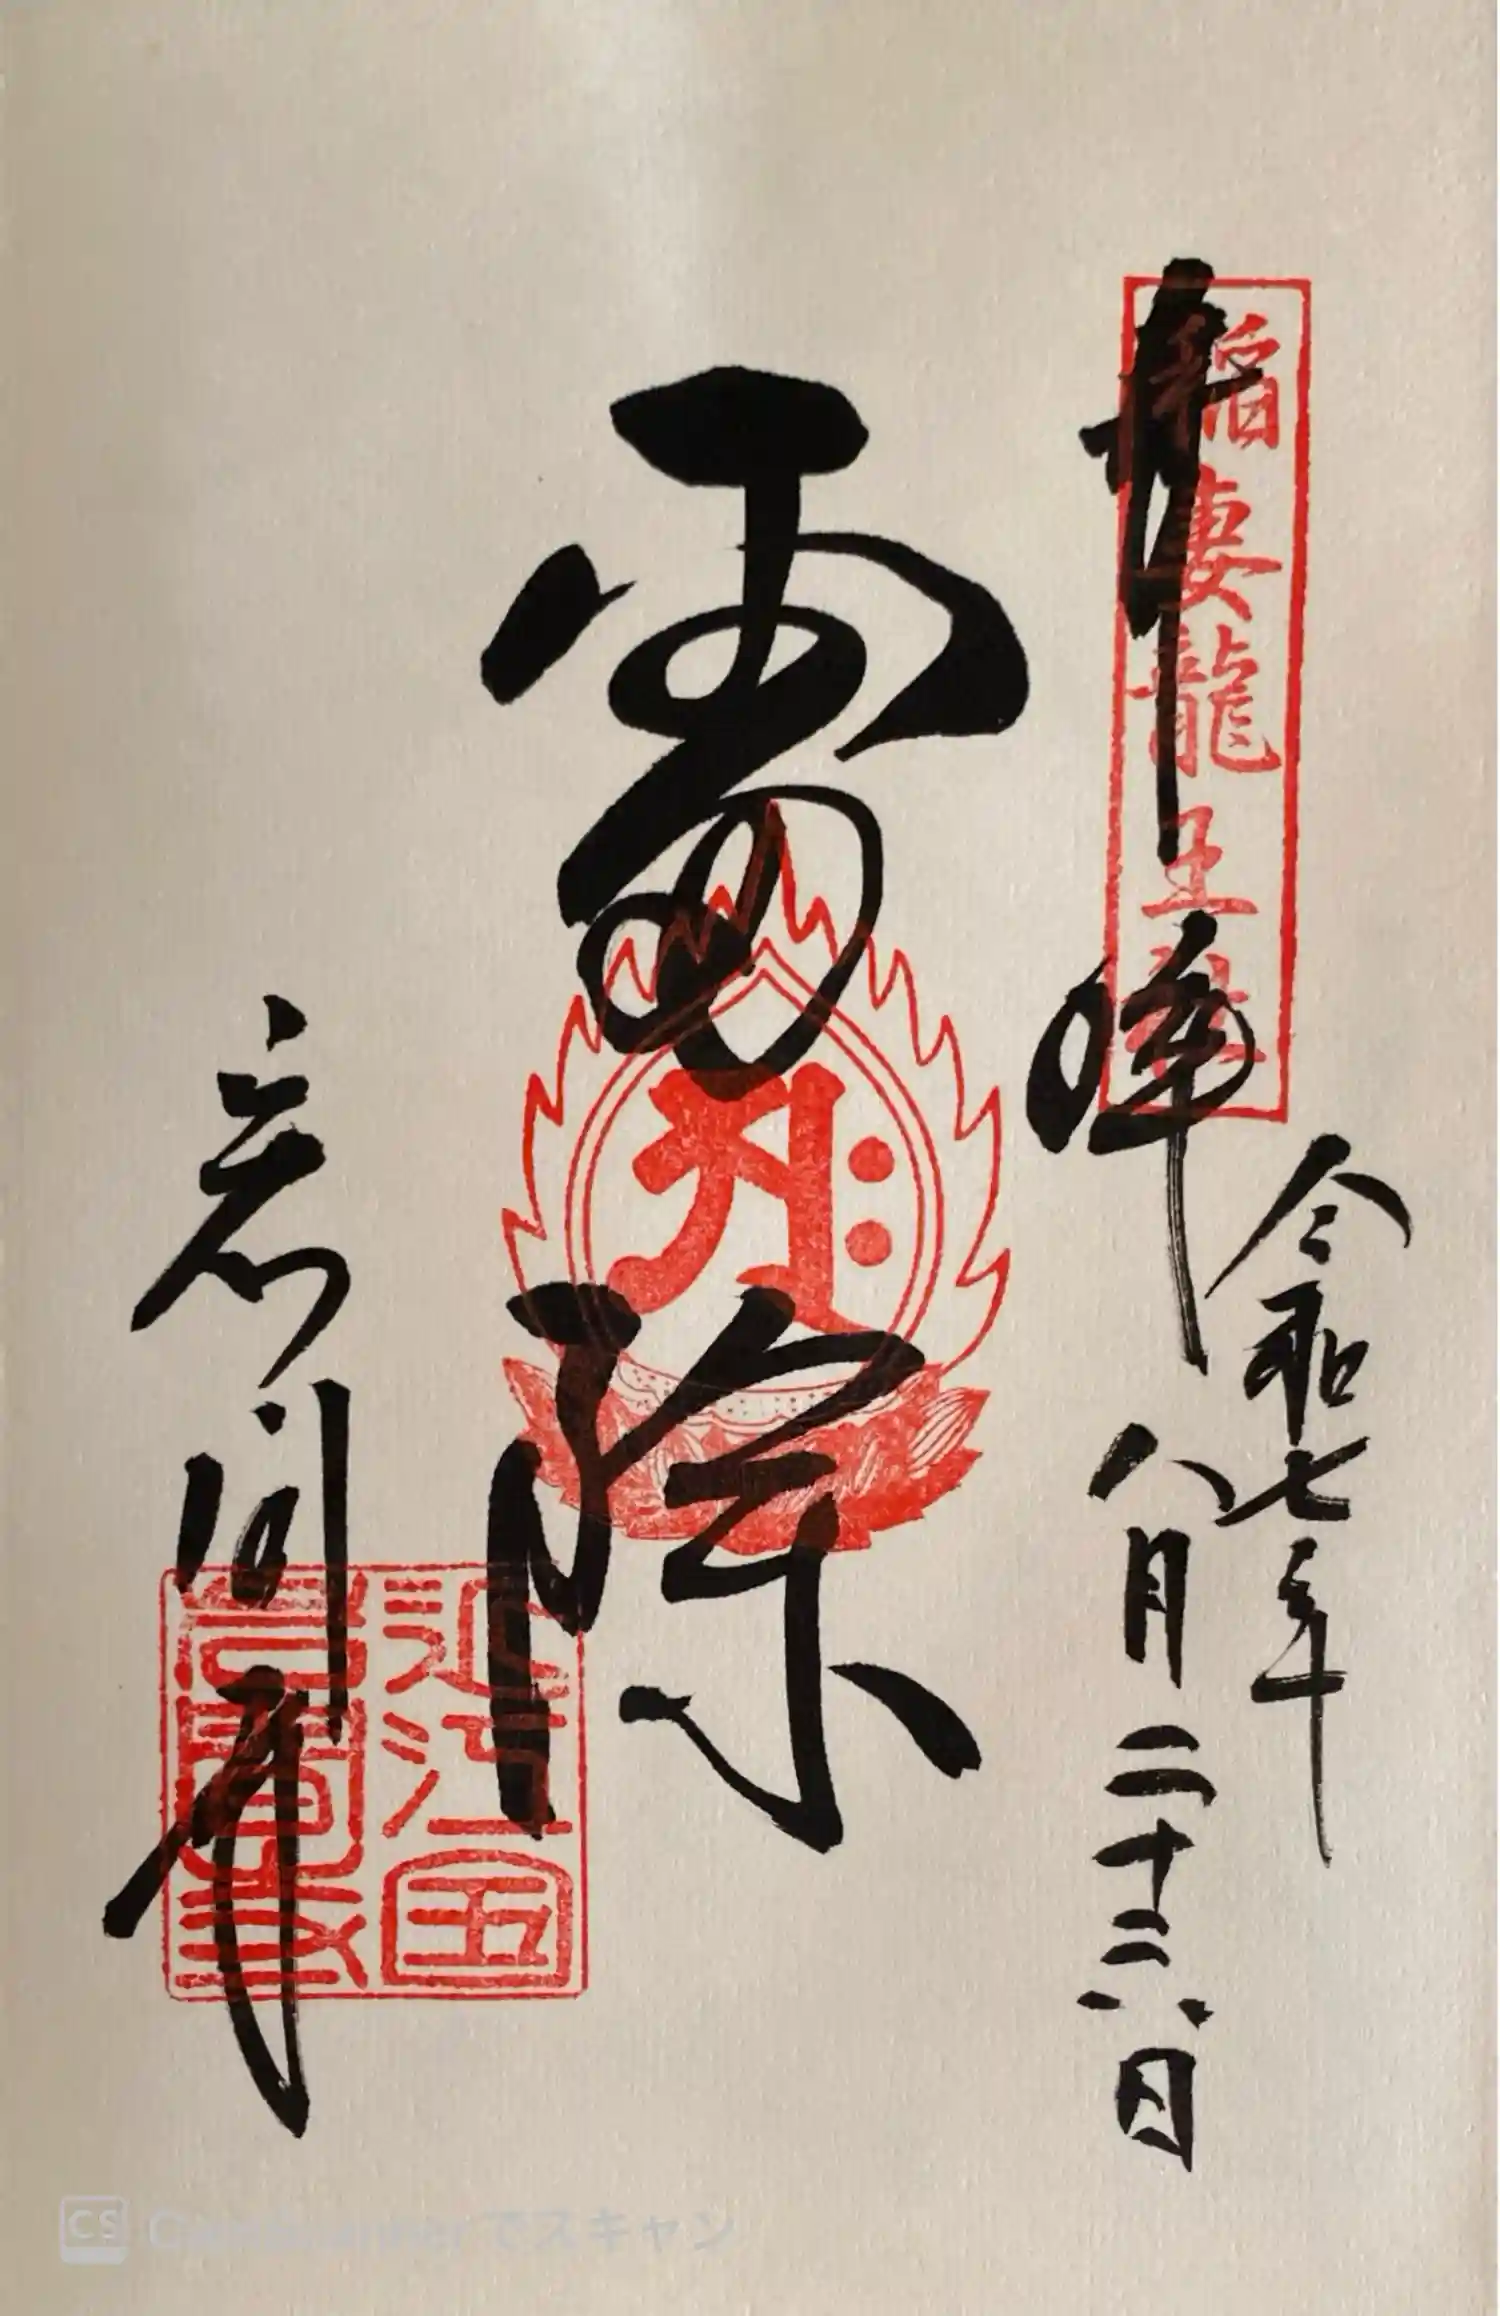 奉拝
稲妻龍王社
令和七年
八月二十六日
雷除
岩間寺
近江国
岩間寺
CS CamScannerでスキャン